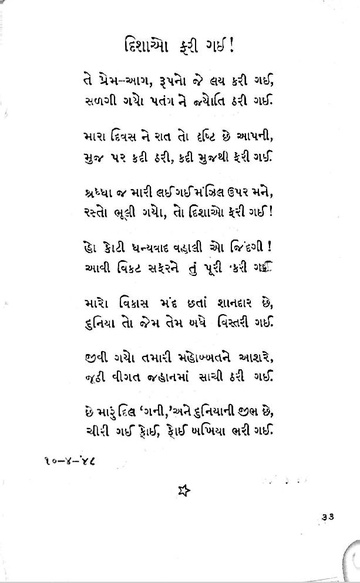 દિશાઓ ફરી ગઈ!
તે પ્રેમ–આગ, રૂપનો જે લય કરી ગઈ,
સળગી ગયો પતંગ ને જ્યોતિ ઠરી ગઈ.
મારા દિવસ ને રાત તો દૃષ્ટિ છે આપની,
મુજ પર કદી ઠરી, કદી મુજથી ફરી ગઈ.
શ્રધ્ધા જ મારી લઈ ગઈ મંઝિલ ઉપર મને,
રસ્તો ભૂલી ગયો, તો દિશાઓ ફરી ગઈ!
હો કોટી ધન્યવાદ વહાલી ઓ જિંદગી!
આવી વિકટ સફરને તું પૂરી કરી ગઈ.
મારો વિકાસ મંદ છતાં શાનદાર છે,
દુનિયા તો જેમ તેમ બધે વિસ્તરી ગઈ.
જીવી ગયો તમારી મહોબ્બતને આશરે,
જૂઠી વીગત જહાનમાં સાચી ઠરી ગઈ.
છે મારું દિલ ‘ગની,’ અને દુનિયાની જીભ છે,
ચીરી ગઈ કોઈ, કોઈ બખિયા ભરી ગઈ.
૧૦–૪–’૪૮
૩૩